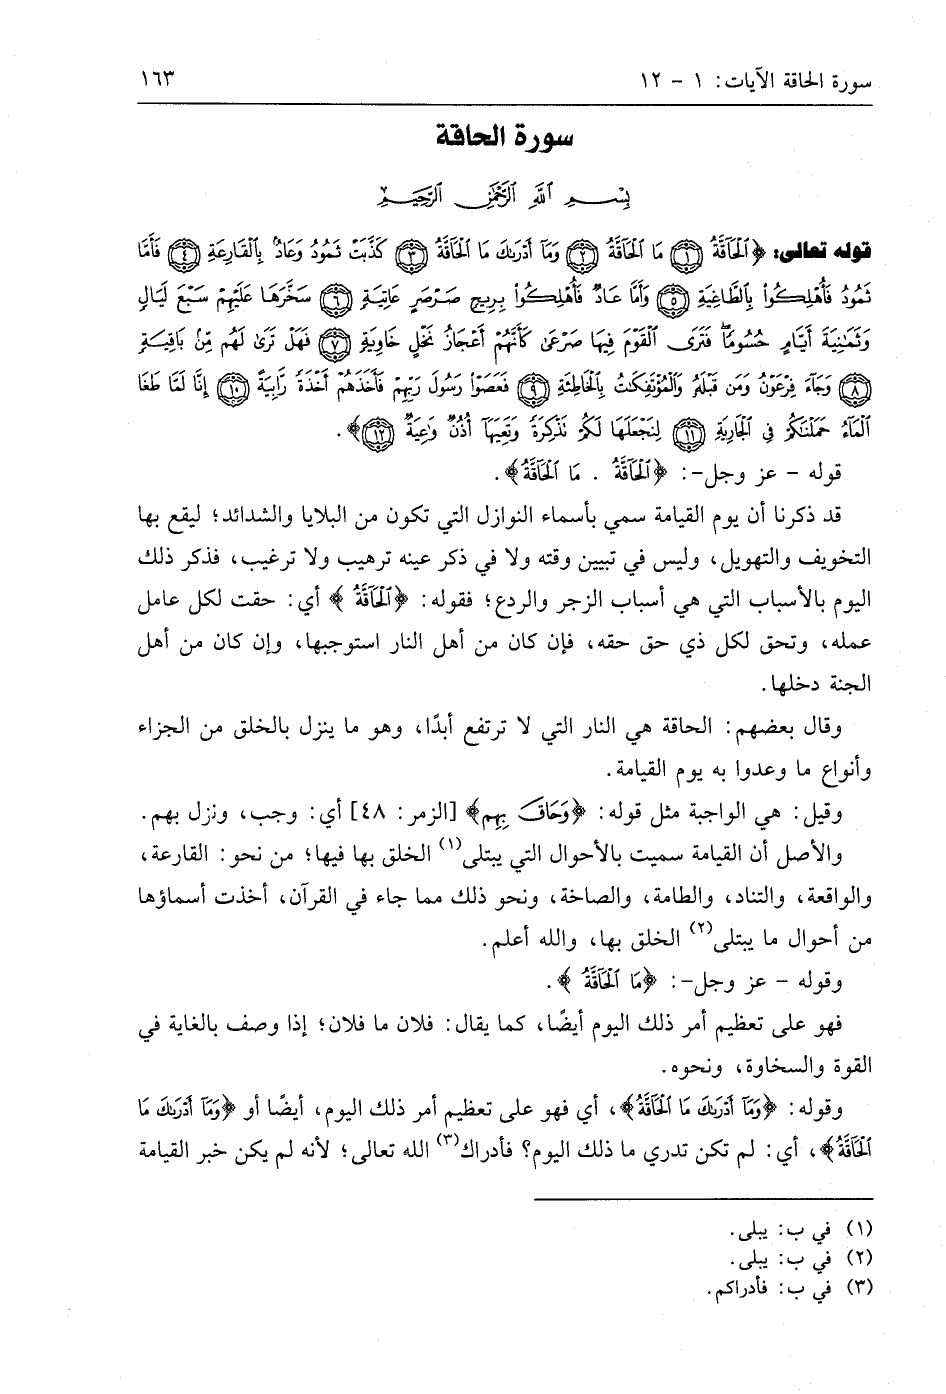 سورة الحاقة الآيات: ١ - ١٢
١٦٣
سورة الحاقة
بِسْمِ ٱللَّهِ ٱلرَّحْمَٰنِ ٱلرَّحِيمِ
قوله تعالى: ﴿ٱلْحَآقَّةُ ١ مَا ٱلْحَآقَّةُ ٢ وَمَآ أَدْرَىٰكَ مَا ٱلْحَآقَّةُ ٣ كَذَّبَتْ ثَمُودُ وَعَادٌۢ بِٱلْقَارِعَةِ ٤ فَأَمَّا
ثَمُودُ فَأُهْلِكُوا۟ بِٱلطَّاغِيَةِ ٥ وَأَمَّا عَادٌ فَأُهْلِكُوا۟ بِرِيحٍ صَرْصَرٍ عَاتِيَةٍ ٦ سَخَّرَهَا عَلَيْهِمْ سَبْعَ لَيَالٍ
وَثَمَٰنِيَةَ أَيَّامٍ حُسُومًا فَتَرَى ٱلْقَوْمَ فِيهَا صَرْعَىٰ كَأَنَّهُمْ أَعْجَازُ نَخْلٍ خَاوِيَةٍ ٧ فَهَلْ تَرَىٰ لَهُم مِّنۢ بَاقِيَةٍ
٨ وَجَآءَ فِرْعَوْنُ وَمَن قَبْلَهُۥ وَٱلْمُؤْتَفِكَٰتُ بِٱلْخَاطِئَةِ ٩ فَعَصَوْا۟ رَسُولَ رَبِّهِمْ فَأَخَذَهُمْ أَخْذَةً رَّابِيَةً ١٠ إِنَّا لَمَّا طَغَا
ٱلْمَآءُ حَمَلْنَٰكُمْ فِى ٱلْجَارِيَةِ ١١ لِنَجْعَلَهَا لَكُمْ تَذْكِرَةً وَتَعِيَهَآ أُذُنٌ وَٰعِيَةٌ ١٢﴾.
قوله - عز وجل-: ﴿ٱلْحَآقَّةُ . مَا ٱلْحَآقَّةُ﴾.
قد ذكرنا أن يوم القيامة سمي بأسماء النوازل التي تكون من البلايا والشدائد؛ ليقع بها
التخويف والتهويل، وليس في تبيين وقته ولا في ذكر عينه ترهيب ولا ترغيب، فذكر ذلك
اليوم بالأسباب التي هي أسباب الزجر والردع؛ فقوله: ﴿ٱلْحَآقَّةُ﴾ أي: حقت لكل عامل
عمله، وتحق لكل ذي حق حقه، فإن كان من أهل النار استوجبها، وإن كان من أهل
الجنة دخلها.
وقال بعضهم: الحاقة هي النار التي لا ترتفع أبدًا، وهو ما ينزل بالخلق من الجزاء
وأنواع ما وعدوا به يوم القيامة.
وقيل: هي الواجبة مثل قوله: ﴿وَحَاقَ بِهِم﴾ [الزمر: ٤٨] أي: وجب، ونزل بهم.
والأصل أن القيامة سميت بالأحوال التي يبتلى(١) الخلق بها فيها؛ من نحو: القارعة،
والواقعة، والتناد، والطامة، والصاخة، ونحو ذلك مما جاء في القرآن، أخذت أسماؤها
من أحوال ما يبتلى(٢) الخلق بها، والله أعلم.
وقوله - عز وجل-: ﴿مَا ٱلْحَآقَّةُ﴾.
فهو على تعظيم أمر ذلك اليوم أيضًا، كما يقال: فلان ما فلان؛ إذا وصف بالغاية في
القوة والسخاوة، ونحوه.
وقوله: ﴿وَمَآ أَدْرَىٰكَ مَا ٱلْحَآقَّةُ﴾، أي فهو على تعظيم أمر ذلك اليوم، أيضًا أو ﴿وَمَآ أَدْرَىٰكَ مَا
ٱلْحَآقَّةُ﴾، أي: لم تكن تدري ما ذلك اليوم؟ فأدراك(٣) الله تعالى؛ لأنه لم يكن خبر القيامة
(١) في ب: يبلى.
(٢) في ب: يبلى.
(٣) في ب: فأدراكم.